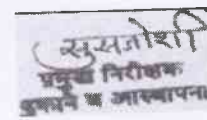 सुसजोशी
प्रमुख निरीक्षक
दुकाने व आस्थापना